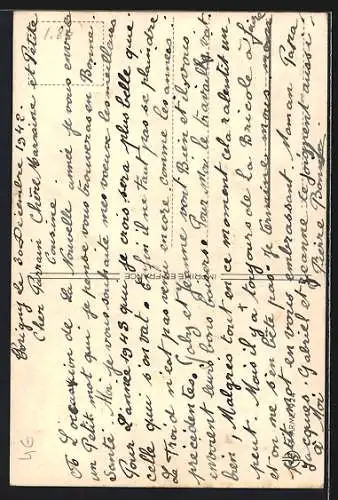 Périgny le 30 Décembre 1942.
Cher Parrain Chère Marraine et Petite
Cousine
A L'occasion de La Nouvelle année je vous envoie
un Petit mot qui je pense vous trouveras en Bonne
Santé. Moi je vous souhaite mes voeux les meilleurs
Pour L'année 1943 qui je crois sera plus belle que
celle qui s'en vat. Enfin il ne faut pas se plaindre
Le Froid n'est pas venu encore comme les années
précédentes. Gaby et Jeanne vont Bien et ils vous
envoient leurs bons Pour Moi le travaille vat
bien, Malgrès tout en ce moment cela ralentit un
peut. Mais il y a toujours de La Bricole a faire
et on ne s'en fête pas. Je termine mais
Petite en vous embrassant Maman Papa
Jacques. Gabriel et Jeanne se joignent aussi
à Moi
IMPRIMÉ EN FRANCE
1.80
4€